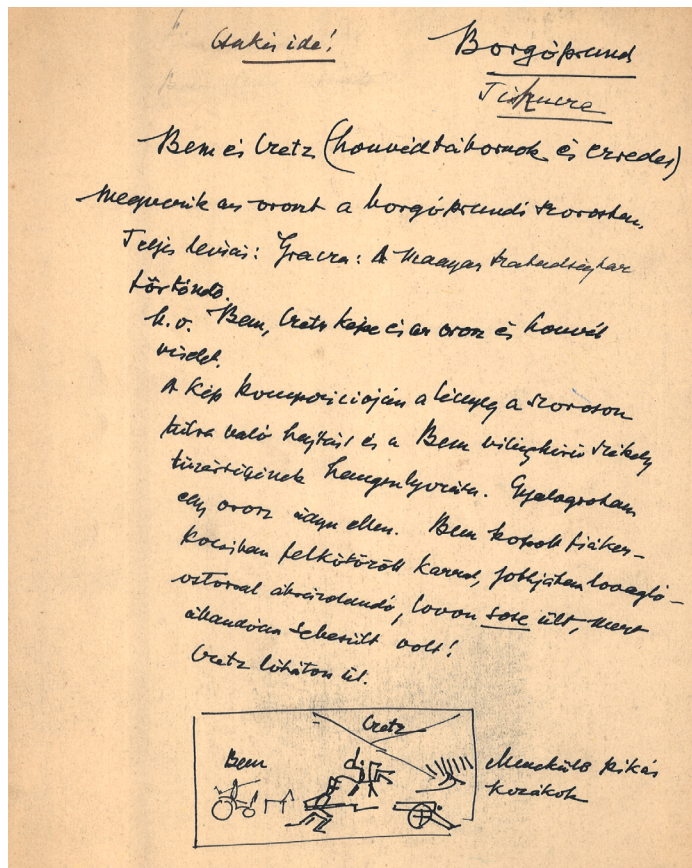 Csakis ide!
Borgóprund
Tihucza
Bem és Uretz (honvédtábornok és ezredes)
megverik az oroszt a borgóprundi szorosban.
Teljes leírás: Gracza: A Magyar szabadságharc
története.
h.v. Bem, Uretz képe és az orosz és honvéd
viselet.
A kép kompozícióján a lényeg a szoroson
túlra való hajtás! és a Bem világhírű székely
tüzérségének hangsúlyozása. Gyalogroham
egy orosz ágyu ellen. Bem kopott fiáker-
kocsiban felkötözött karral, jobbjában lovagló-
ostorral ábrázolandó, lovon sose ült, mert
állandóan sebesült volt!
Uretz lóháton ül.
Uretz
Bem
Menekülő pikás
kozákok